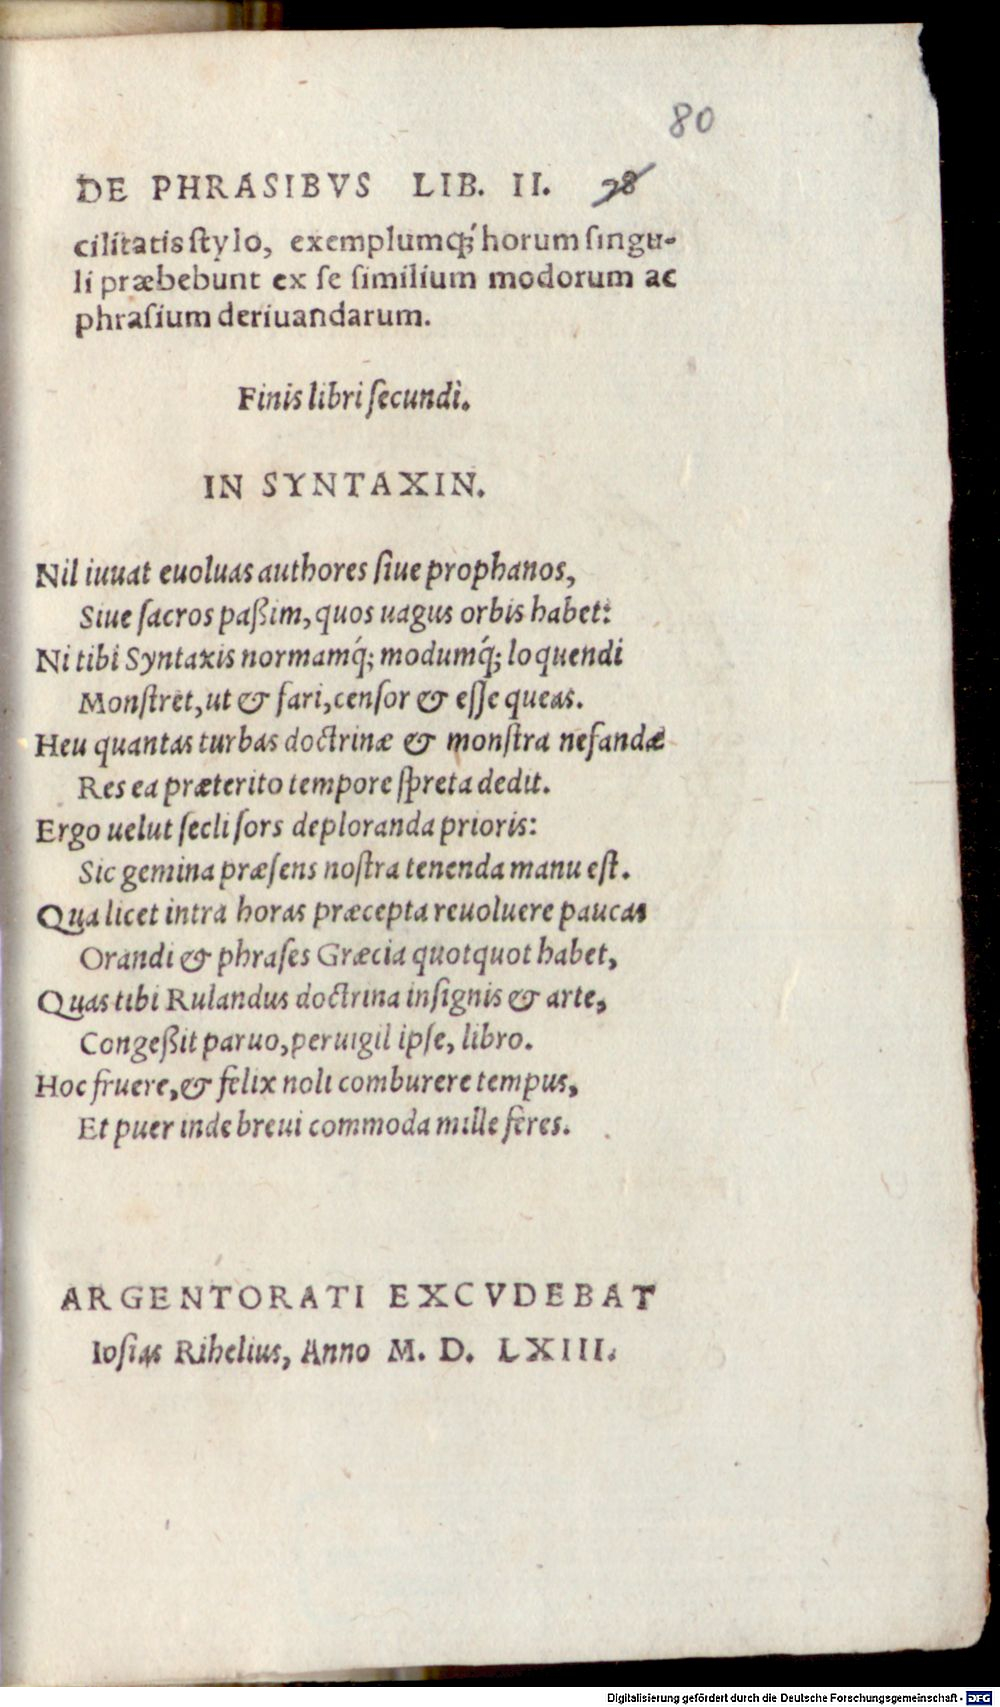 80
DE PHRASIBVS LIB. II. 78
cilitatis ſtylo, exemplumq́; horum ſingu-
li præbebunt ex ſe ſimilium modorum ac
phraſium deriuandarum.
Finis libri ſecundi.
IN SYNTAXIN.
Nil iuuat euoluas authores ſiue prophanos,
Siue ſacros paßim, quos uagus orbis habet:
Ni tibi Syntaxis normamq́; modumq́; loquendi
Monſtret, ut & fari, cenſor & eſſe queas.
Heu quantas turbas doctrinæ & monſtra nefandæ
Res ea præterito tempore ſpreta dedit.
Ergo uelut ſecli ſors deploranda prioris:
Sic gemina præſens noſtra tenenda manu eſt.
Qua licet intra horas præcepta reuoluere paucas
Orandi & phraſes Græcia quotquot habet,
Quas tibi Rulandus doctrina inſignis & arte,
Congeßit paruo, peruigil ipſe, libro.
Hoc fruere, & felix noli comburere tempus,
Et puer inde breui commoda mille feres.
ARGENTORATI EXCVDEBAT
Ioſias Rihelius, Anno M. D. LXIII.
Digitalisierung gefördert durch die Deutsche Forschungsgemeinschaft - DFG